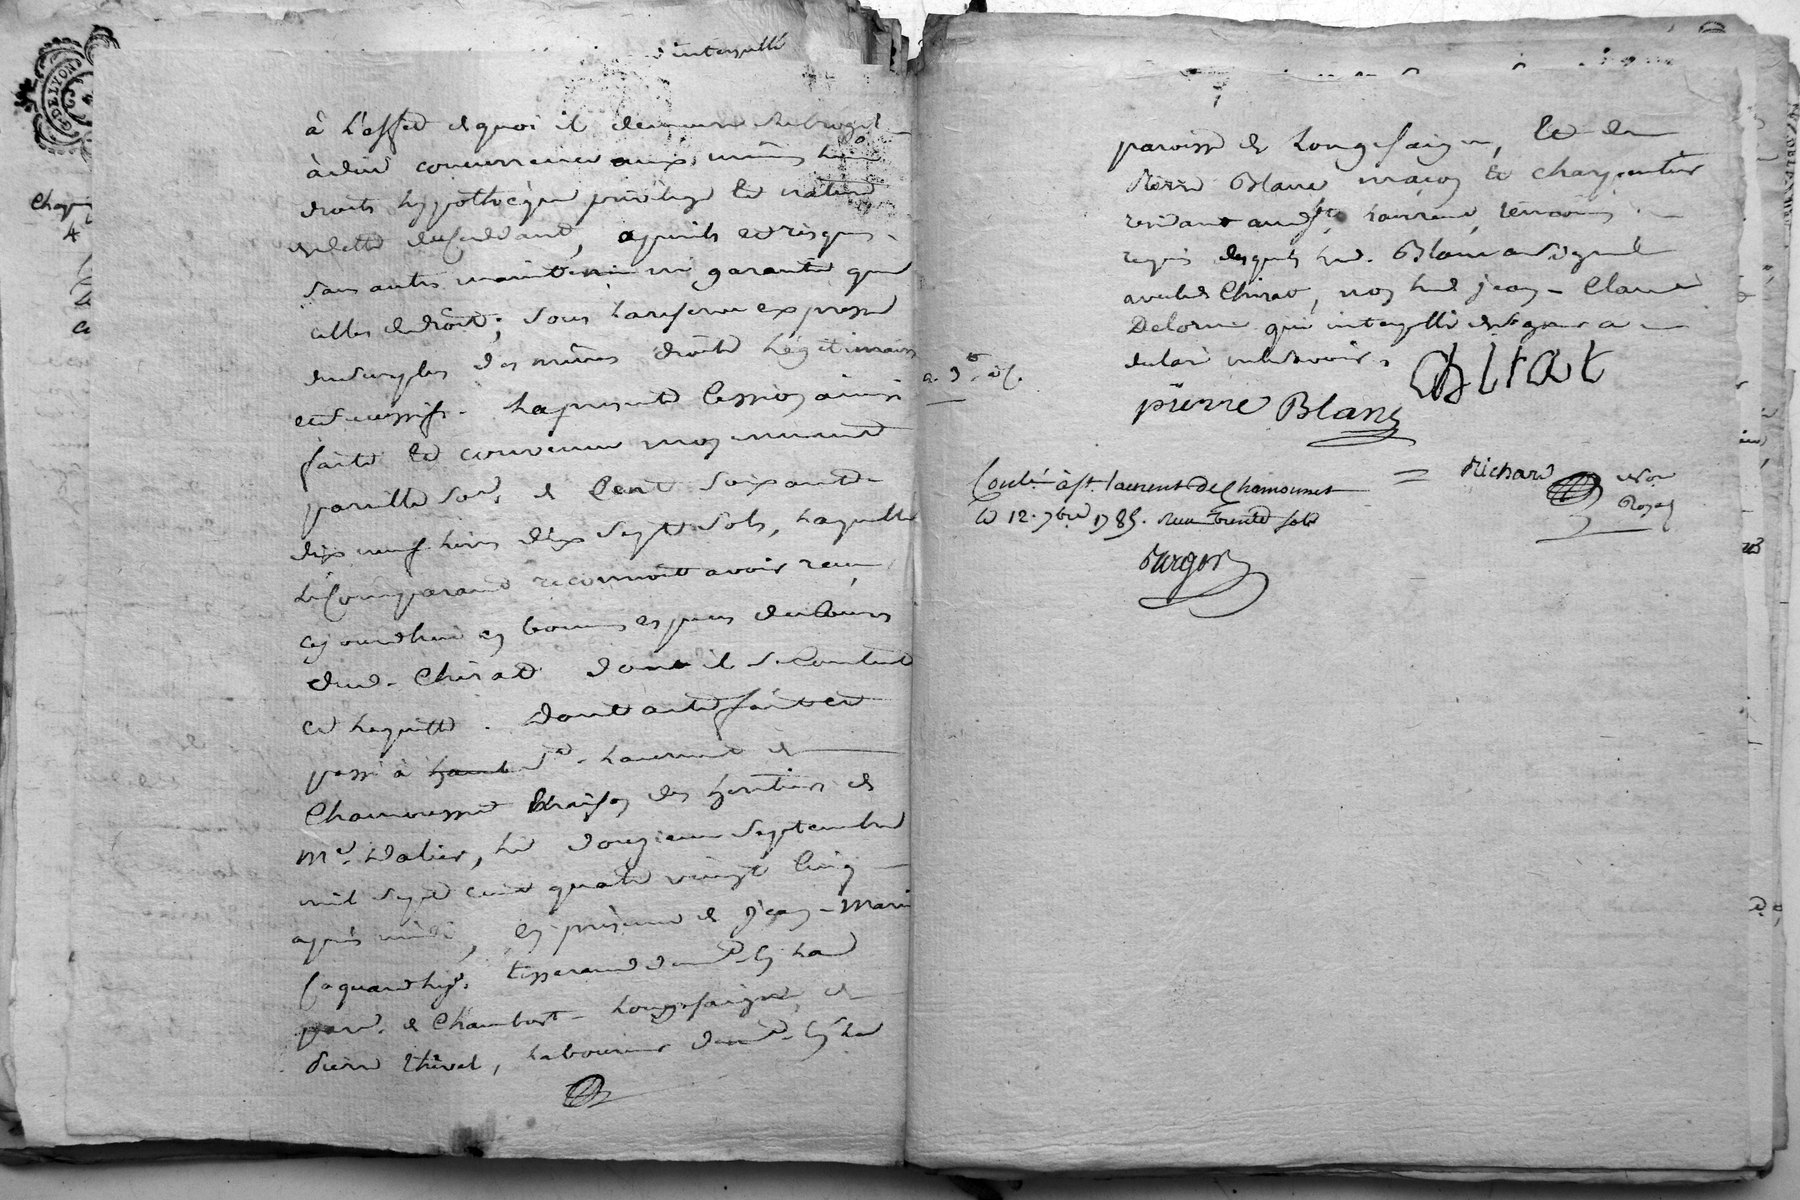 G. DE LYON
à l'effet de quoi il demeure subrogé
à due concurrence aux mêmes
droits hypothèque privilege et nature
de dette du cédant, a perils et risques
sans autre maintenue ni garantie que
celles de droit; sous la reserve expresse
des mêmes droits légitimaires
et successifs. La presente Cession ainsi
faite et convenue moyennant
pareille som. de Cent soixante
dix neuf livres dix sept sols, laquelle
le Comparant reconnoit avoir reçu
cejourdhui en bonnes especes de cours
dud. Chirat dont il se contente
et le quitte. Dont acte fait et
passé à St. Laurent de
Chamousset maison des heritiers de
Me. Dalier, le douzieme Septembre
mil sept cent quatre vingt Cinq
après midi, en presence de Jean-Marie
tisserand dem.t en la
par.se de Chambost-Longesaigne, de
Pierre Thivel, laboureur dem.t en lad
paroisse de Longesaigne, et de
Pierre Blanc maçon et charpentier
residant aud. St. Laurent, temoins
requis desquels led. Blanc a signé
avec led. Chirat, non led. Jean-Claude
Delorme qui interpellé de signer a
declaré ne le savoir.
Chirat
pierre Blanc
Richard
not.re
Royal
Contr.lé à St. Laurent De Chamousset
le 12. 7bre 1785. Reçu trente sols